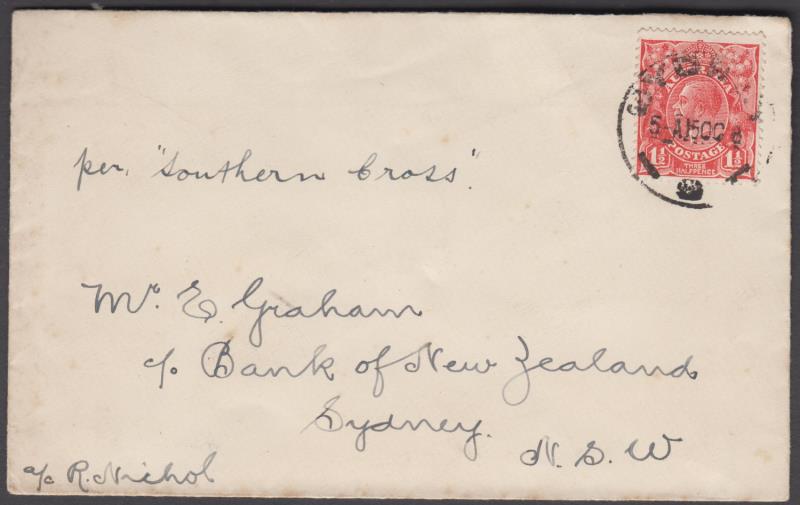 SYDNEY
AUSTRALIA
5-A 15OC
POSTAGE
1½ THREE HALFPENCE 1½
per, "Southern Cross".
Mr. E. Graham
c/o Bank of New Zealand
Sydney.
N. S. W
a/c R. Nichol